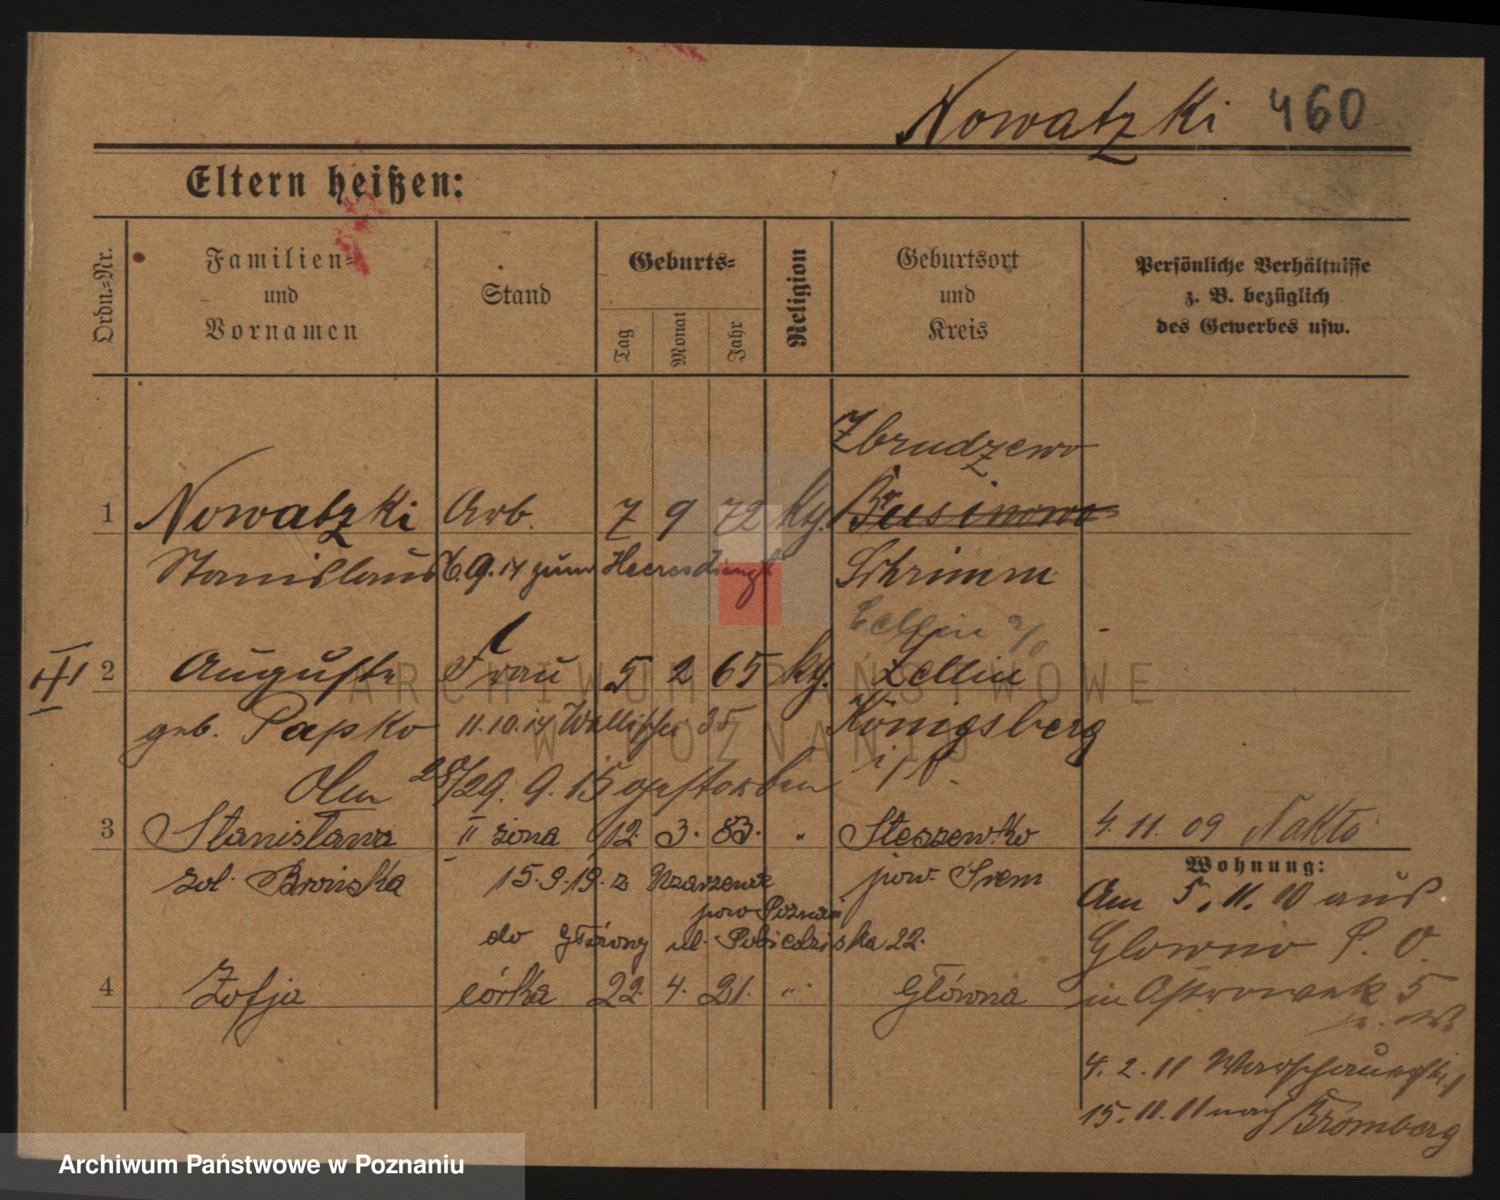 Nowatzki 460
Eltern heißen:
Ordn.=Nr.
Familien=
und
Vornamen
Stand
Geburts=
Tag
Monat
Jahr
Religion
Geburtsort
und
Kreis
Persönliche Verhältnisse
z. B. bezüglich
des Gewerbes usw.
Zbrudzewo
1 Nowatzki Arb. 7 9 72 kth. Brusinowo
Stanislaus 6.9.14 zum Heeresdienst Schrimm
Zellin a/O
III 2 Auguste Frau 5 2 65 kth. Zellin
geb. Papko 11.10.14 Wallischei 35 Königsberg
Am 28/29. 9. 15 gestorben
3 Stanisława II żona 12. 3. 83. " Steszewko 4. 11. 09 Nakło
Wohnung:
zol. Brońska 15.9.19. z pow. Śrem Am 5. 11. 10 aus
pow Poznań
do Główny ul. Pobiedziska 22. Glowno P. O.
4 Zofja córka 22. 4. 21. " Główna in Ostrowek 5
4. 2. 11
15. 11. 11 nach Bromberg
ARCHIWUM PAŃSTWOWE
W POZNANIU
Archiwum Państwowe w Poznaniu